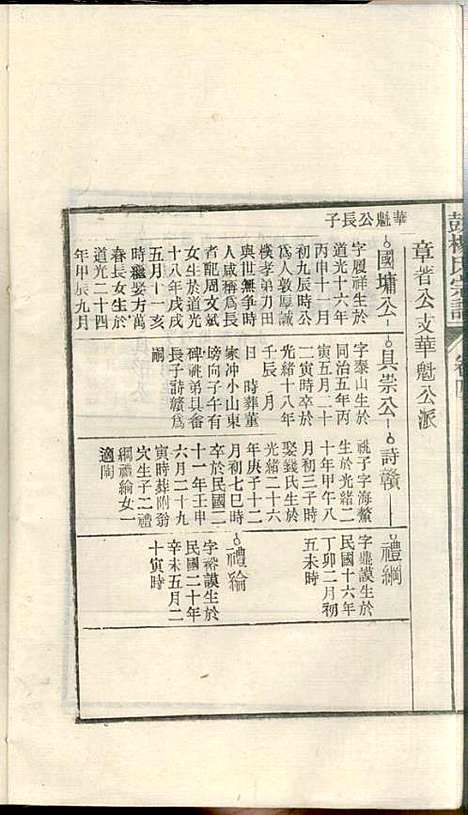 章者公支華魁公派
華魁公長子
國墉公
字履祥生於
道光十六年
丙申十一月
初九辰時公
為人敦厚誠
樸孝弟力田
與世無爭時
人咸稱為長
者配周文斌
女生於道光
十八年戌戌
五月十一亥
時繼娶方萬
春長女生於
道光二十四
年甲辰九月
具崇公
字泰山生於
同治五年丙
寅五月二十
寅時卒於
光緒十八年
壬辰 月
日 時葬董
家冲小山東
塝向子午有
碑祧弟具畨
長子詩贛為
嗣
詩贛
祧子字海鰲
生於光緒二
十年甲午八
月初三子時
娶錢氏生於
光緒二十六
年庚子十二
月初七巳時
卒於民國二
十一年壬申
六月二十九
寅時葬附翁
穴生子二禮
綱禮綸女一
適陶
禮綱
字 謨生於
民國十六年
丁卯二月初
五未時
禮綸
字 謨生於
民國二十年
辛未五月二
十寅時